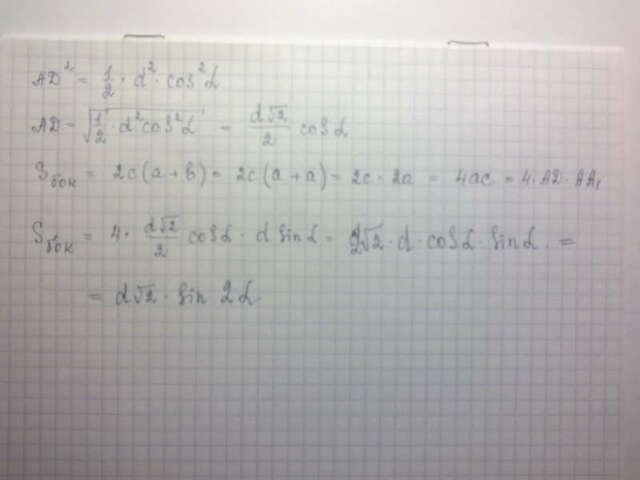 AD² = 1/2 · d² · cos²α
AD = √(1/2 · d²cos²α) = d√2/2 cosα
Sбок = 2c(a+b) = 2c(a+a) = 2c · 2a = 4ac = 4·AD·AA₁
Sбок = 4 · d√2/2 cosα · d sinα = 2√2 · d · cosα · sinα =
= d√2 · sin 2α